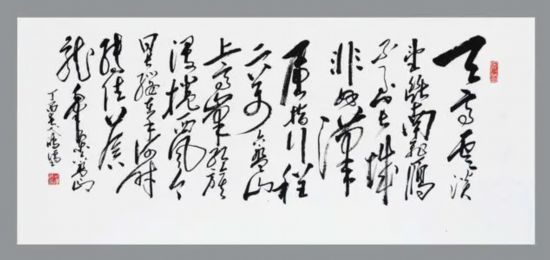 天高雲淡
望斷南飛雁
不到長城
非好漢
屈指行程
二万六盤山
上高峰紅旗
漫捲西風今
日長纓在手何時
縛住蒼
龍 六盤山
丁酉